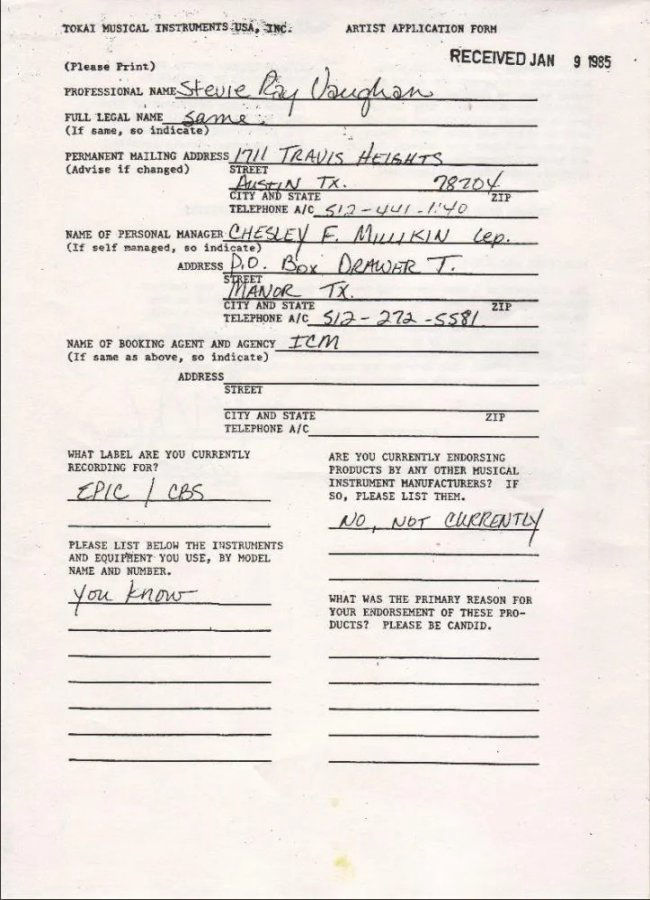 TOKAI MUSICAL INSTRUMENTS USA, INC. ARTIST APPLICATION FORM
RECEIVED JAN 9 1985
(Please Print)
PROFESSIONAL NAME Stevie Ray Vaughan
FULL LEGAL NAME same.
(If same, so indicate)
PERMANENT MAILING ADDRESS 1711 TRAVIS HEIGHTS
(Advise if changed) STREET
AUSTIN TX. 78704
CITY AND STATE ZIP
TELEPHONE A/C 512-441-1:40
NAME OF PERSONAL MANAGER CHESLEY F. MILLIKIN
(If self managed, so indicate)
ADDRESS P.O. Box DRAWER T.
STREET
MANOR TX.
CITY AND STATE ZIP
TELEPHONE A/C 512-272-5581
NAME OF BOOKING AGENT AND AGENCY ICM
(If same as above, so indicate)
ADDRESS
STREET
CITY AND STATE ZIP
TELEPHONE A/C
WHAT LABEL ARE YOU CURRENTLY
RECORDING FOR?
EPIC / CBS
PLEASE LIST BELOW THE INSTRUMENTS
AND EQUIPMENT YOU USE, BY MODEL
NAME AND NUMBER.
you know
ARE YOU CURRENTLY ENDORSING
PRODUCTS BY ANY OTHER MUSICAL
INSTRUMENT MANUFACTURERS? IF
SO, PLEASE LIST THEM.
NO, NOT CURRENTLY
WHAT WAS THE PRIMARY REASON FOR
YOUR ENDORSEMENT OF THESE PRO-
DUCTS? PLEASE BE CANDID.